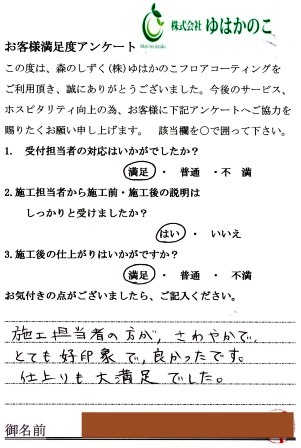 株式会社 ゆはかのこ
お客様満足度アンケート
この度は、森のしずく(株)ゆはかのこフロアコーティングを
ご利用頂き、誠にありがとうございました。今後のサービス、
ホスピタリティ向上の為、お客様に下記アンケートへご協力を
賜りたくお願い申し上げます。 該当欄を○で囲って下さい。
1. 受付担当者の対応はいかがでしたか?
満足 ・ 普通 ・不 満
2.施工担当者から施工前・施工後の説明は
しっかりと受けましたか?
はい ・ いいえ
3.施工後の仕上がりはいかがですか?
満足 ・ 普通 ・ 不満
お気付きの点がございましたら、ご記入ください。
施工担当者の方が、さわやかで、
とても好印象で、良かったです。
仕上りも大満足でした。
御名前